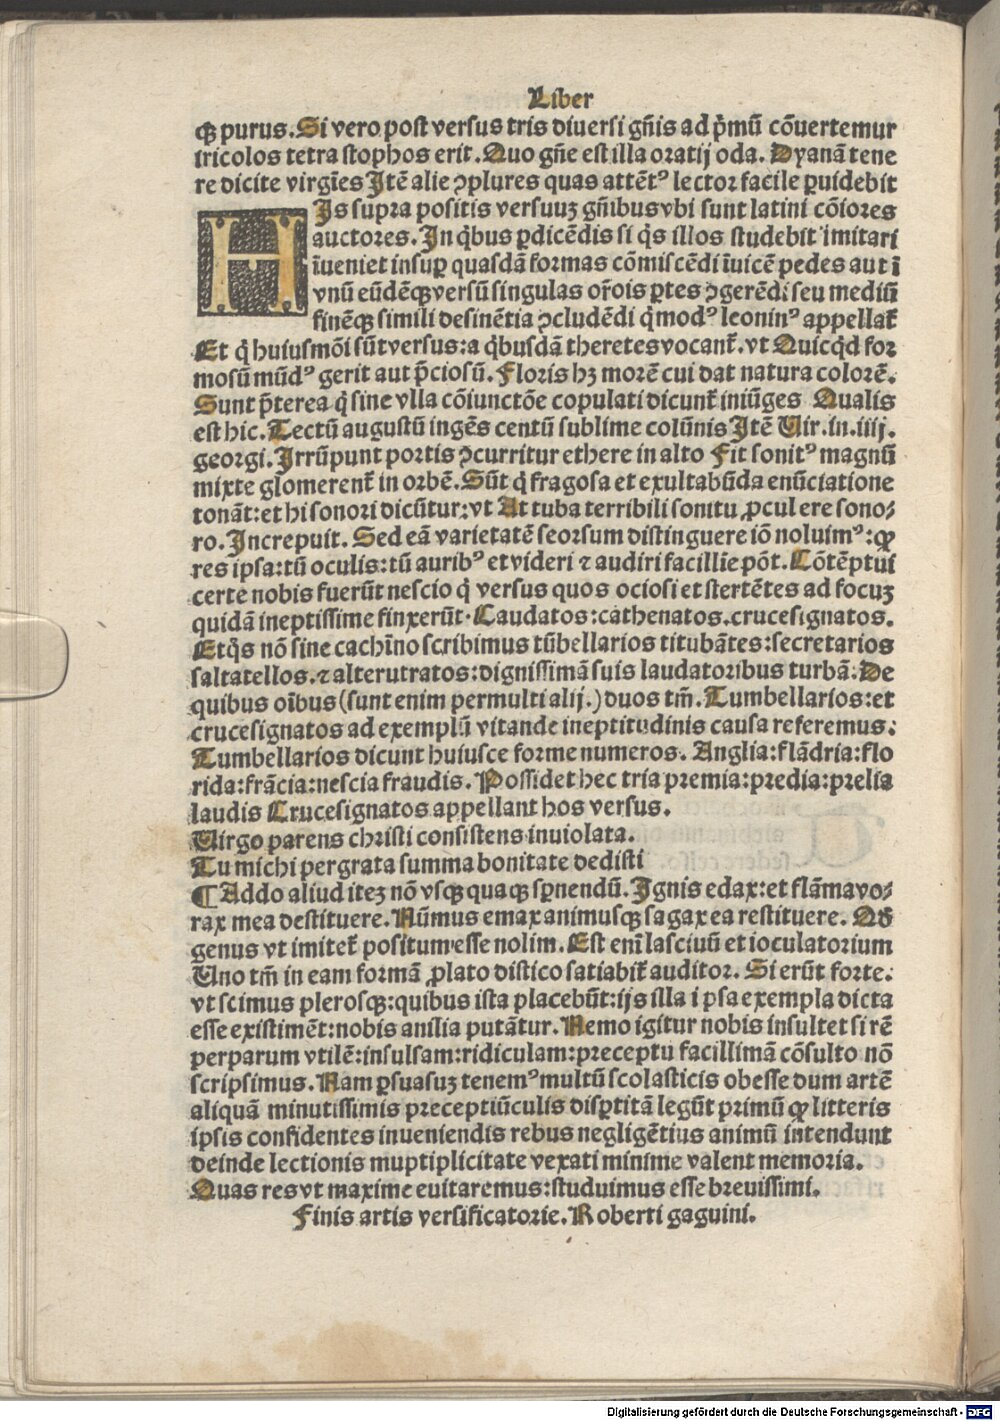 Liber
qꝫ purus. Si vero post versus tris diuersi gñis ad p̄mũ cõuertemur
iricolos tetra stophos erit. Quo gñe est illa oratij oda. Dyanã tene
re dicite virgĩes Jtẽ alie ꝯplures quas attẽtꝰ lector facile ꝑuidebit
HJs supra positis versuuꝫ gñibus vbi sunt latini cõiores
auctores. Jn qͥbus p̱dicẽdis si qͥs illos studebit imitari
ĩueniet insuꝑ quasdã formas cõmiscẽdi ĩuicẽ pedes aut ĩ
vnũ eũdẽqꝫ versũ singulas or̃ois ꝑtes ꝯgerẽdi seu mediũ
finẽqꝫ simili desinẽtia ꝯcludẽdi qͥ modꝰ leoninꝰ appellat̃
Et qͥ huiusmõi sũt versus: a qͥbusdã theretes vocant̃. vt Quicqͥd for
mosũ mũdꝰ gerit aut p̄ciosũ. Floris hꝫ morẽ cui dat natura colorẽ.
Sunt p̄terea qͥ sine vlla cõiunctõe copulati dicunt̃ iniũges Qualis
est hic. Tectũ augustũ ingẽs centũ sublime colũnis Jtẽ Uir. in. iiij.
georgi. Jrrũpunt portis ꝯcurritur ethere in alto Fit sonitꝰ magnũ
mixte glomerent̃ in orbẽ. Sũt qͥ fragosa et exultabũda enũciatione
tonãt: et hi sonori dicũtur: vt At tuba terribili sonitu ꝓcul ere sono⸗
ro. Jncrepuit. Sed eã varietatẽ seorsum distinguere iõ noluimꝰ: qꝛ
res ipsa: tũ oculis: tũ auribꝰ et videri ⁊ audiri facillĩe põt. Cõtẽptui
certe nobis fuerũt nescio qͥ versus quos ociosi et stertẽtes ad focuꝫ
quidã ineptissime finxerũt. Caudatos: cathenatos. crucesignatos.
Et qͥs nõ sine cachĩno scribimus tũbellarios titubãtes: secretarios
saltatellos. ⁊ alterutratos: dignissimã suis laudatoribus turbã. De
quibus oĩbus (sunt enim permulti alij.) duos tm̃. Tumbellarios: et
crucesignatos ad exemplũ vitande ineptitudinis causa referemus:
Tumbellarios dicunt huiusce forme numeros. Anglia: flãdria: flo
rida: frãcia: nescia fraudis. Possidet hec tria premia: predia: prelia
laudis Crucesignatos appellant hos versus.
Uirgo parens christi consistens inuiolata.
Tu michi pergrata summa bonitate dedisti
¶ Addo aliud iteꝫ nõ vsqꝫ quaqꝫ sp̱nendũ. Jgnis edax: et flãma vo⸗
rax mea destituere. Nũmus emax animusqꝫ sagax ea restituere. Qd̃
genus vt imitet̃ positum esse nolim. Est enĩ lasciuũ et ioculatorium
Uno tm̃ in eam formã ꝓlato distico satiabit̃ auditor. Si erũt forte:
vt scimus plerosqꝫ: quibus ista placebũt: ijs illa ipsa exempla dicta
esse existimẽt: nobis anilia putãtur. Nemo igitur nobis insultet si rẽ
perparum vtilẽ: insulsam: ridiculam: preceptu facillimã cõsulto nõ
scripsimus. Nam ꝑsuasuꝫ tenemꝰ multũ scolasticis obesse dum artẽ
aliquã minutissimis preceptiũculis disꝑtitã legũt primũ qꝛ litteris
ipsis confidentes inueniendis rebus negligẽtius animũ intendunt
deinde lectionis muptiplicitate vexati minime valent memoria.
Quas res vt maxime euitaremus: studuimus esse breuissimi.
Finis artis versificatorie. Roberti gaguini.
Digitalisierung gefördert durch die Deutsche Forschungsgemeinschaft - DFG